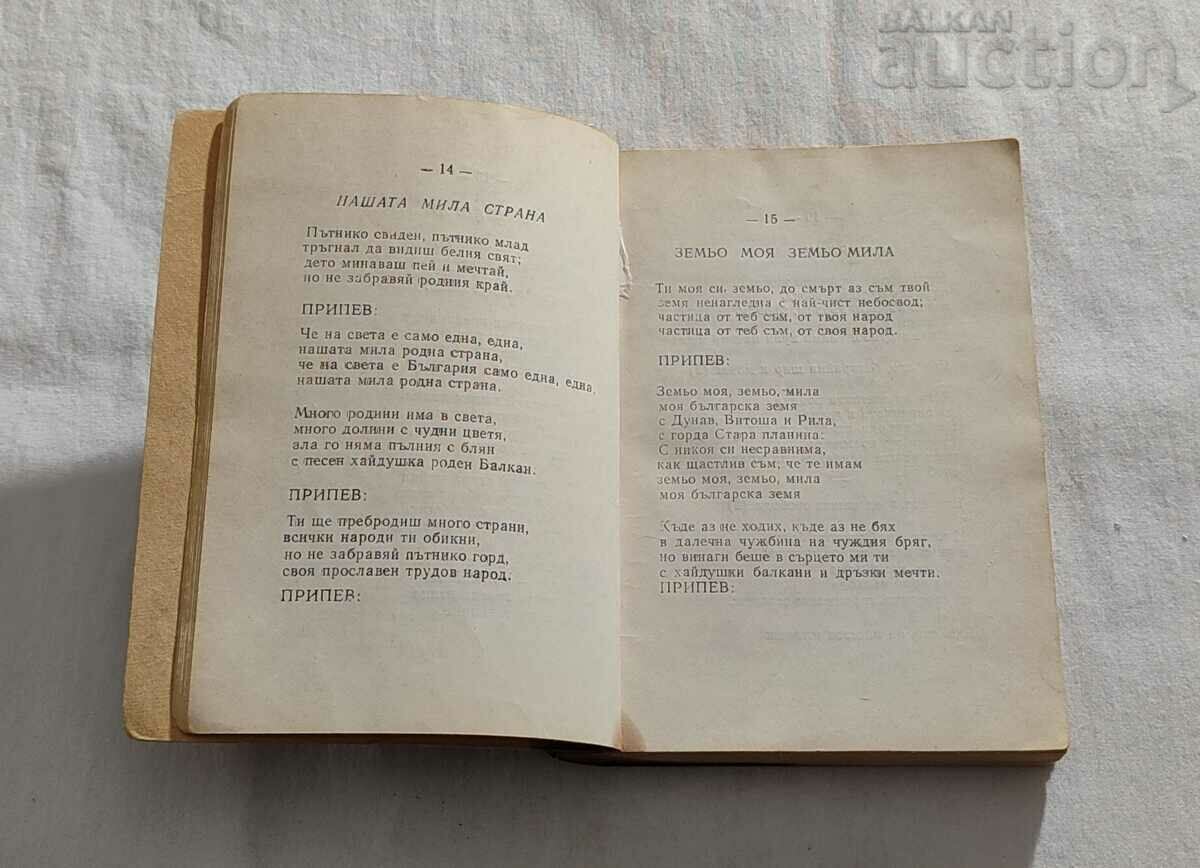 BALKAN
auction
— 14 —
НАШАТА МИЛА СТРАНА
Пътнико свиден, пътнико млад
тръгнал да видиш белия свят;
дето минаваш пей и мечтай,
но не забравяй родния край.
ПРИПЕВ:
Че на света е само една, една,
нашата мила родна страна,
че на света е България само една, една,
нашата мила родна страна.
Много родини има в света,
много долини с чудни цветя,
ала го няма пълния с блян
с песен хайдушка роден Балкан.
ПРИПЕВ:
Ти ще пребродиш много страни,
всички народи ти обикни,
но не забравяй пътнико горд,
своя прославен трудов народ.
ПРИПЕВ:
— 15 —
ЗЕМЬО МОЯ ЗЕМЬО МИЛА
Ти моя си, земьо, до смърт аз съм твой
земя ненагледна с най-чист небосвод;
частица от теб съм, от твоя народ
частица от теб съм, от своя народ.
ПРИПЕВ:
Земьо моя, земьо, мила
моя българска земя
с Дунав, Витоша и Рила,
с горда Стара планина.
С никоя си несравнима,
как щастлив съм, че те имам
земьо моя, земьо, мила
моя българска земя
Къде аз не ходих, къде аз не бях
в далечна чужбина на чуждия бряг,
но винаги беше в сърцето ми ти
с хайдушки балкани и дръзки мечти.
ПРИПЕВ: